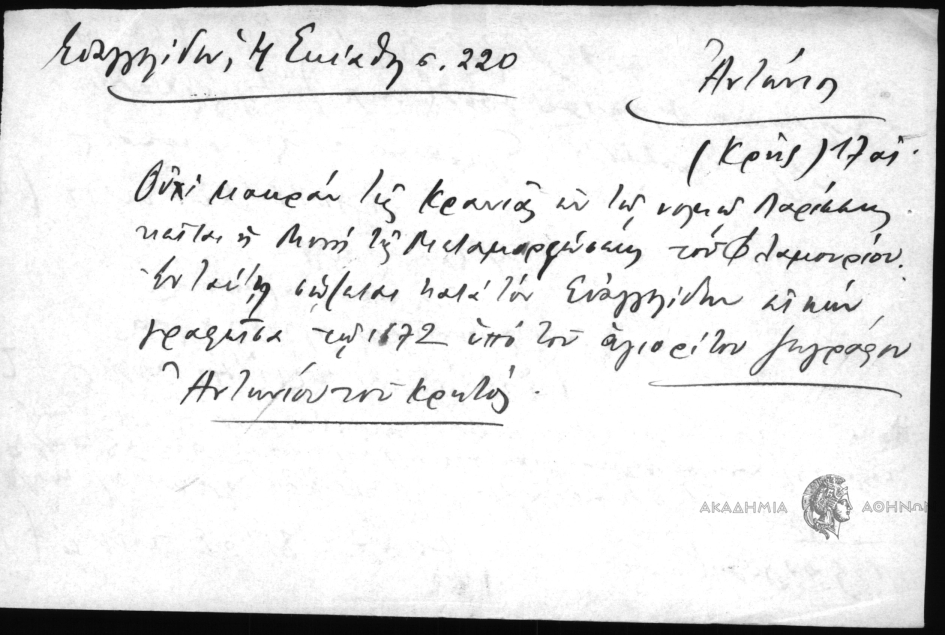 Εὐαγγελίδου, Ἡ Σκίαθος σ. 220
Ἀντώνιος
(Κρής) 17 αἰ.
Οὐχὶ μακρὰν τῆς Κρανιᾶς ἐν τῷ νομῷ Λαρίσσης
κεῖται ἡ Μονὴ τῆς Μεταμορφώσεως τοῦ Φλαμουρίου.
Ἐν ταύτῃ σώζεται κατὰ τὸν Εὐαγγελίδην εἰκὼν
γραφεῖσα τῷ 1672 ὑπὸ τοῦ ἁγιορείτου ζωγράφου
Ἀντωνίου τοῦ Κρητός.
ΑΚΑΔΗΜΙΑ ΑΘΗΝΩΝ